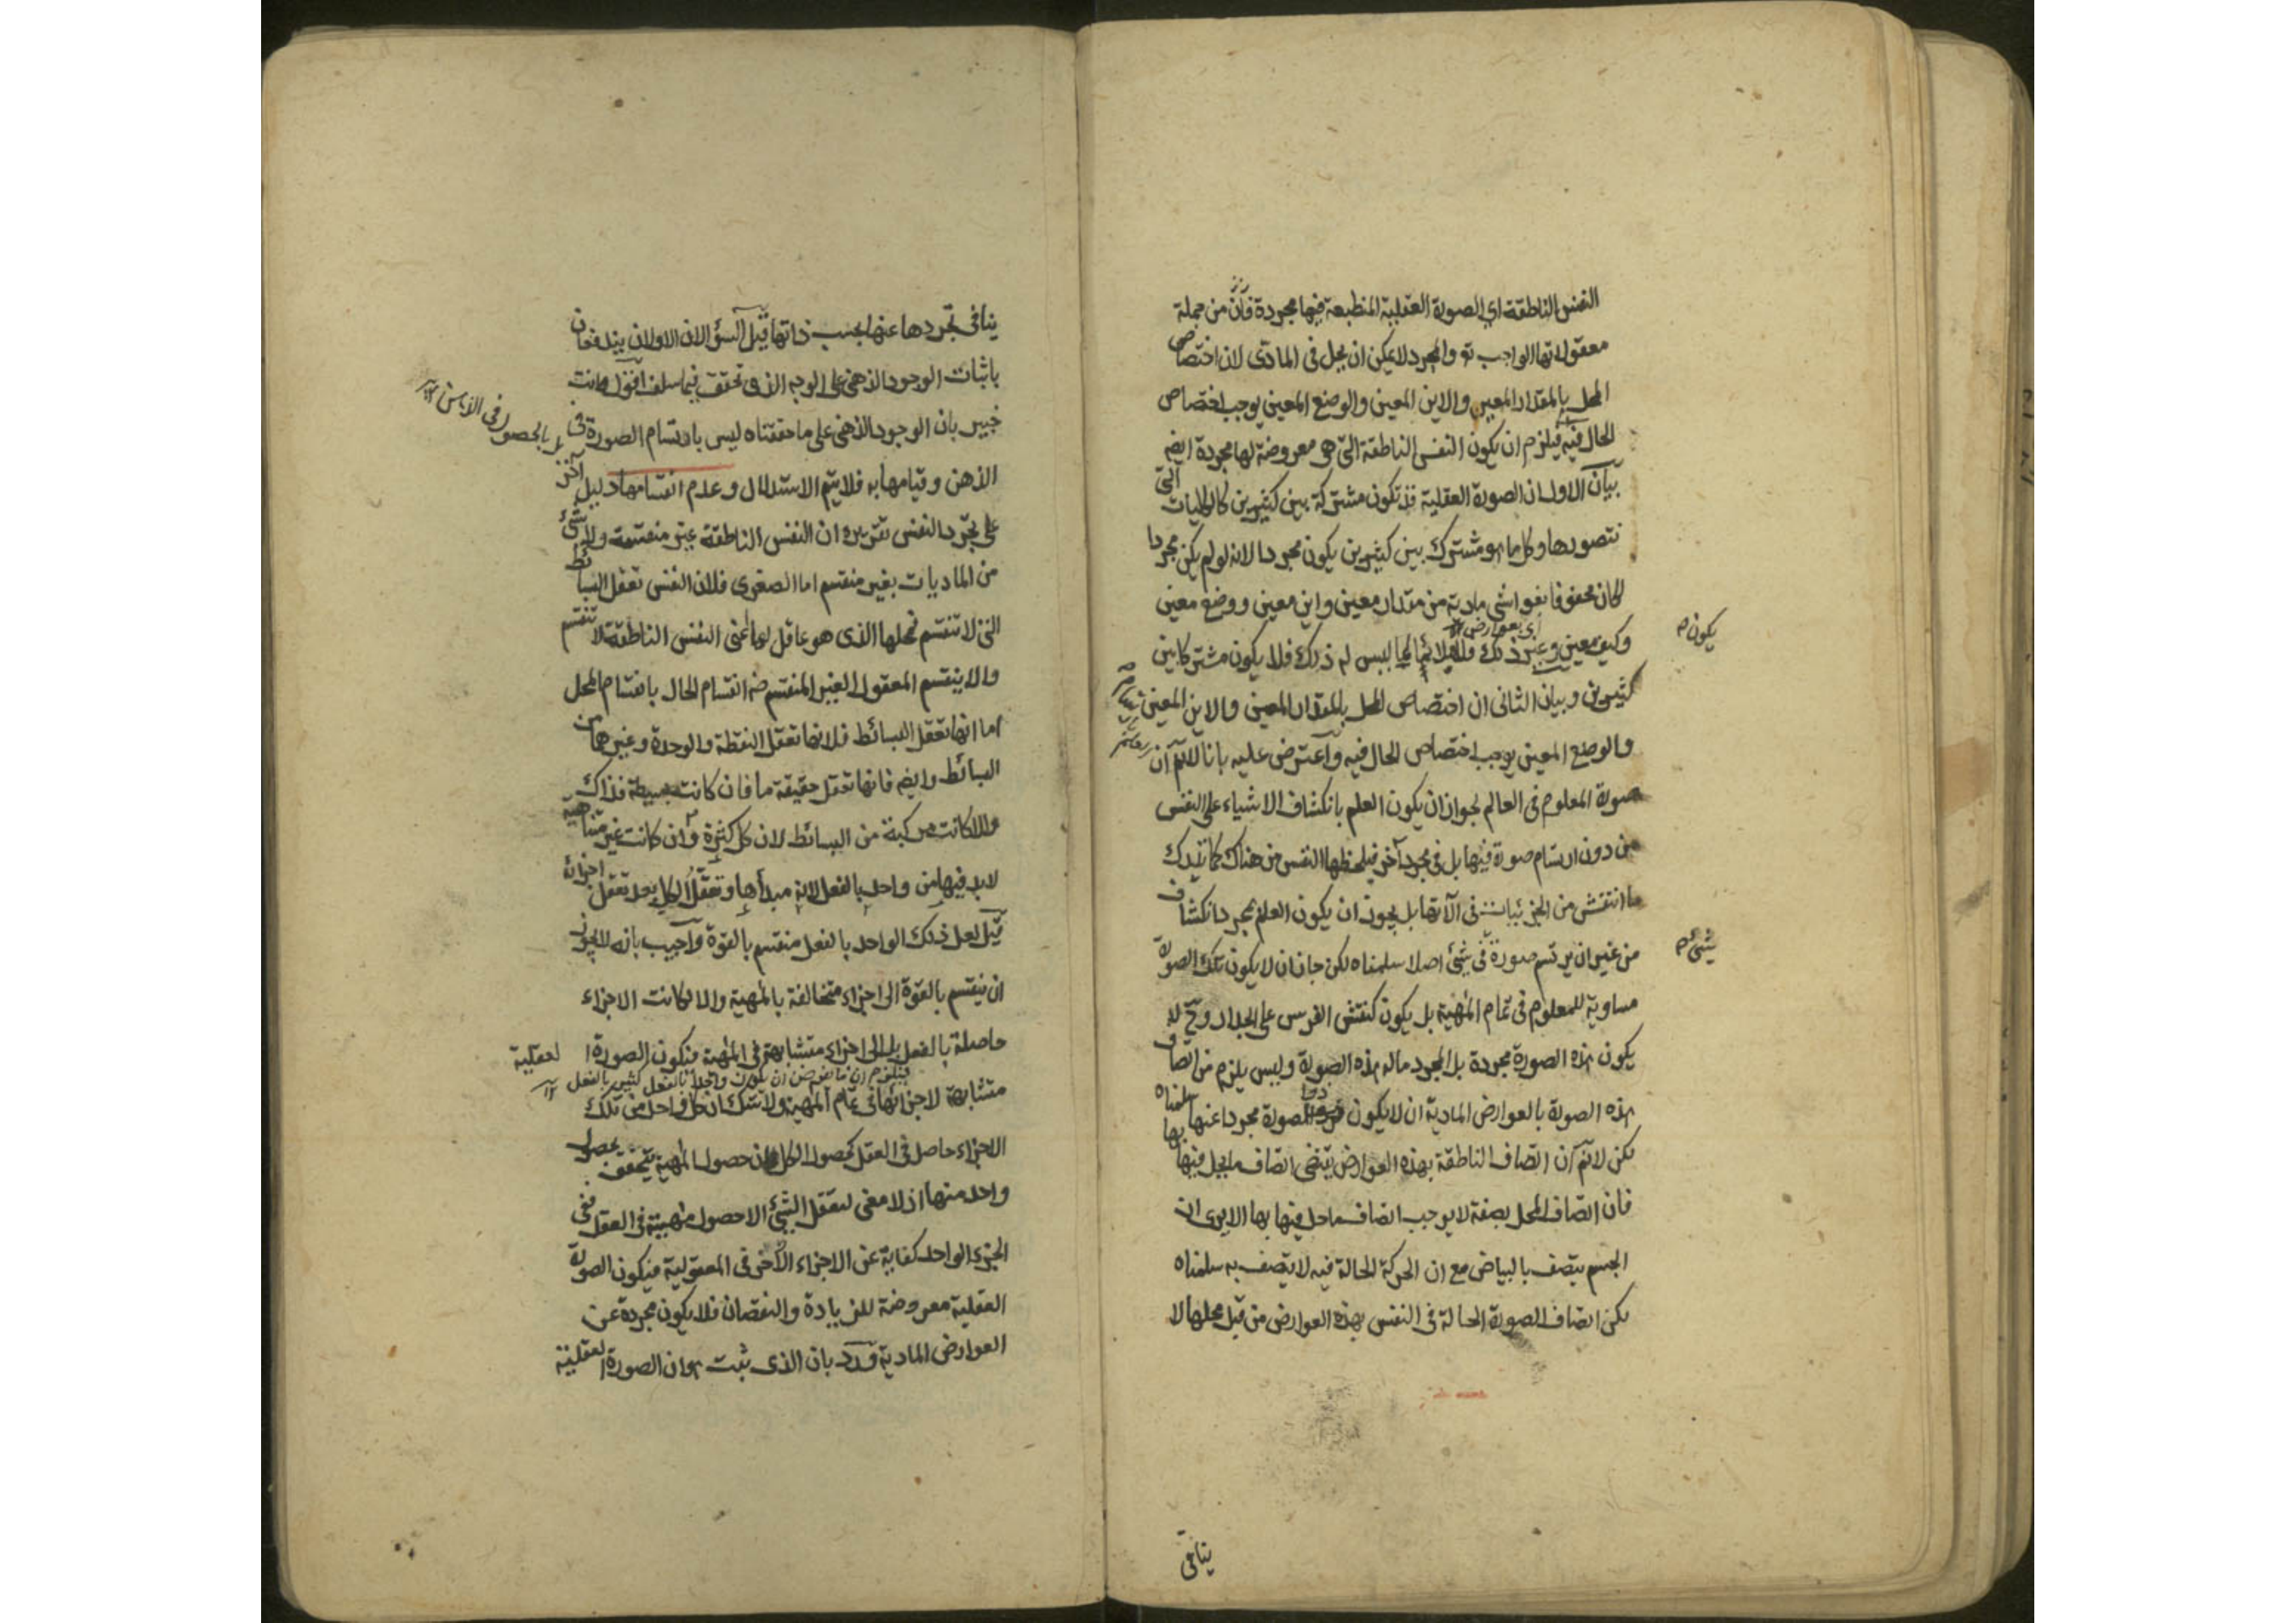 النفس الناطقة اي الصورة العقلية المنطبعة فيها مجردة فان من جملة
معقولاتها الواجب تع والمجرد لا يمكن ان يحل فى المادى لان اختصاص
المحل بالمقدار المعين والاين المعين والوضع المعين يوجب اختصاص
الحال فيه فيلزم ان يكون النفس الناطقة التى هى معروضة لها مجردة ايض
بيان الاول ان الصورة العقلية قد تكون مشتركة بين كثيرين كالكليات التى
نتصورها وكل ما هو مشترك بين كثيرين يكون مجردا لانه لو لم يكن مجردا
لكان محفوفا بغواشى مادية من مقدار معين واين معين ووضع معين
وكيف معين وغير ذلك فلا يلائم لما ليس له ذلك فلا يكون مشتركا بين
اى بعوارض
يكون م
كثيرين وبيان الثانى ان اختصاص المحل بالمقدار المعين والاين المعين
والوضع المعين يوجب اختصاص الحال فيه واعترض عليه بانا لانم ان
صورة المعلوم فى العالم لجواز ان يكون العلم بانكشاف الاشياء على النفس
من دون ارتسام صورة فيها بل فى مجرد آخر فيلحظها النفس من هناك كما تدرك
ما انتقش من الجزئيات فى الآتها بل يجوز ان يكون العلم بمجرد انكشاف
من غير ان يرتسم صورة فى شئ اصلا سلمناه لكن جاز ان لا يكون تلك الصورة
شئ م
مساوية للمعلوم فى تمام المهية بل يكون كنقش الفرس على الجدار وح لا
يكون هذه الصورة مجردة بل المجرد ماله هذه الصورة وليس يلزم من اتصاف
هذه الصورة بالعوارض المادية ان لا يكون ذو الصورة مجردا عنها سلمناه
لكن لانم ان اتصاف الناطقة بهذه العوارض يقتضى اتصاف ما يحل فيها بها
فان اتصاف المحل بصفة لا يوجب اتصاف ما حل فيها بها الا يرى ان
الجسم يتصف بالبياض مع ان الحركة الحالة فيه لا يتصف به سلمناه
لكن اتصاف الصورة الحالة فى النفس بهذه العوارض من قبل محلها لا
ينافى
ينافى تجردها عنها بحسب ذاتها قيل السؤالان الاولان يندفعان
باثبات الوجود الذهنى على الوجه الذى تحقق فيما سلف اقول وانت
خبير بان الوجود الذهنى على ما حققناه ليس بارتسام الصورة فى
بل بالحصول فى الاذهان
الذهن وقيامها به فلا يتم الاستدلال وعدم انقسامها دليل آخر
على تجرد النفس تقريره ان النفس الناطقة غير منقسمة ولا شئ
من الماديات بغير منقسم اما الصغرى فلان النفس تعقل البسائط
التى لا تنقسم فمحلها الذى هو عاقل لها اعنى النفس الناطقة لا تنقسم
والا ينقسم المعقول الغير المنقسم ضرورة انقسام الحال بانقسام المحل
اما انها تعقل البسائط فلانها تعقل النقطة والوحدة وغيرهما من
البسائط وايض فانها تعقل حقيقة ما فان كانت بسيطة فذاك
والا كانت مركبة من البسائط لان كل كثرة وان كانت غير متناهية
لابد فيها من واحد بالفعل لانه مبدأها وتعقل الكل بعد تعقل اجزائه
قيل لعل ذلك الواحد بالفعل منقسم بالقوة واجيب بانه لا يجوز
ان ينقسم بالقوة الى اجزاء متخالفة بالمهية والا لكانت الاجزاء
حاصلة بالفعل بل الى اجزاء متشابهة فى المهية فيكون الصورة العقلية
فيلزم ان ما نفرض ان يكون واحدا بالفعل كثير بالفعل
متشابهة لاجزائها فى تمام المهية ولا شك ان كل واحد من تلك
الاجزاء حاصل فى العقل كحصول الكل فان حصول المهية يتحقق بحصول
واحد منها اذ لا معنى لتعقل الشئ الا حصول مهيته فى العقل ففى
الجزء الواحد كفاية عن الاجزاء الاخر فى المعقولية فيكون الصورة
العقلية معروضة للزيادة والنقصان فلا يكون مجردة عن
العوارض المادية ورد بان الذى ثبت هو ان الصورة العقلية